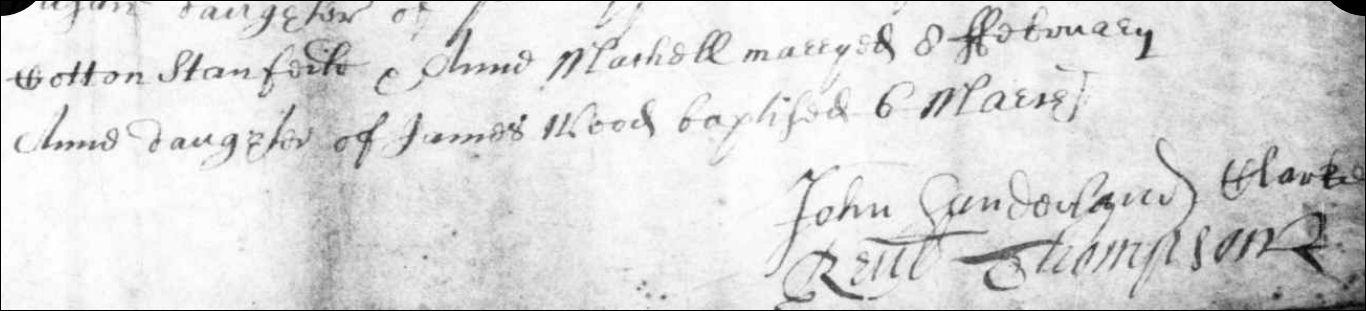 daughter of
Cotton Stanfeild & Anne Mathell marryed 8 ffebruary
Anne daughter of James Wood baptised 6 March
John Sunderland Clarke
Thompson